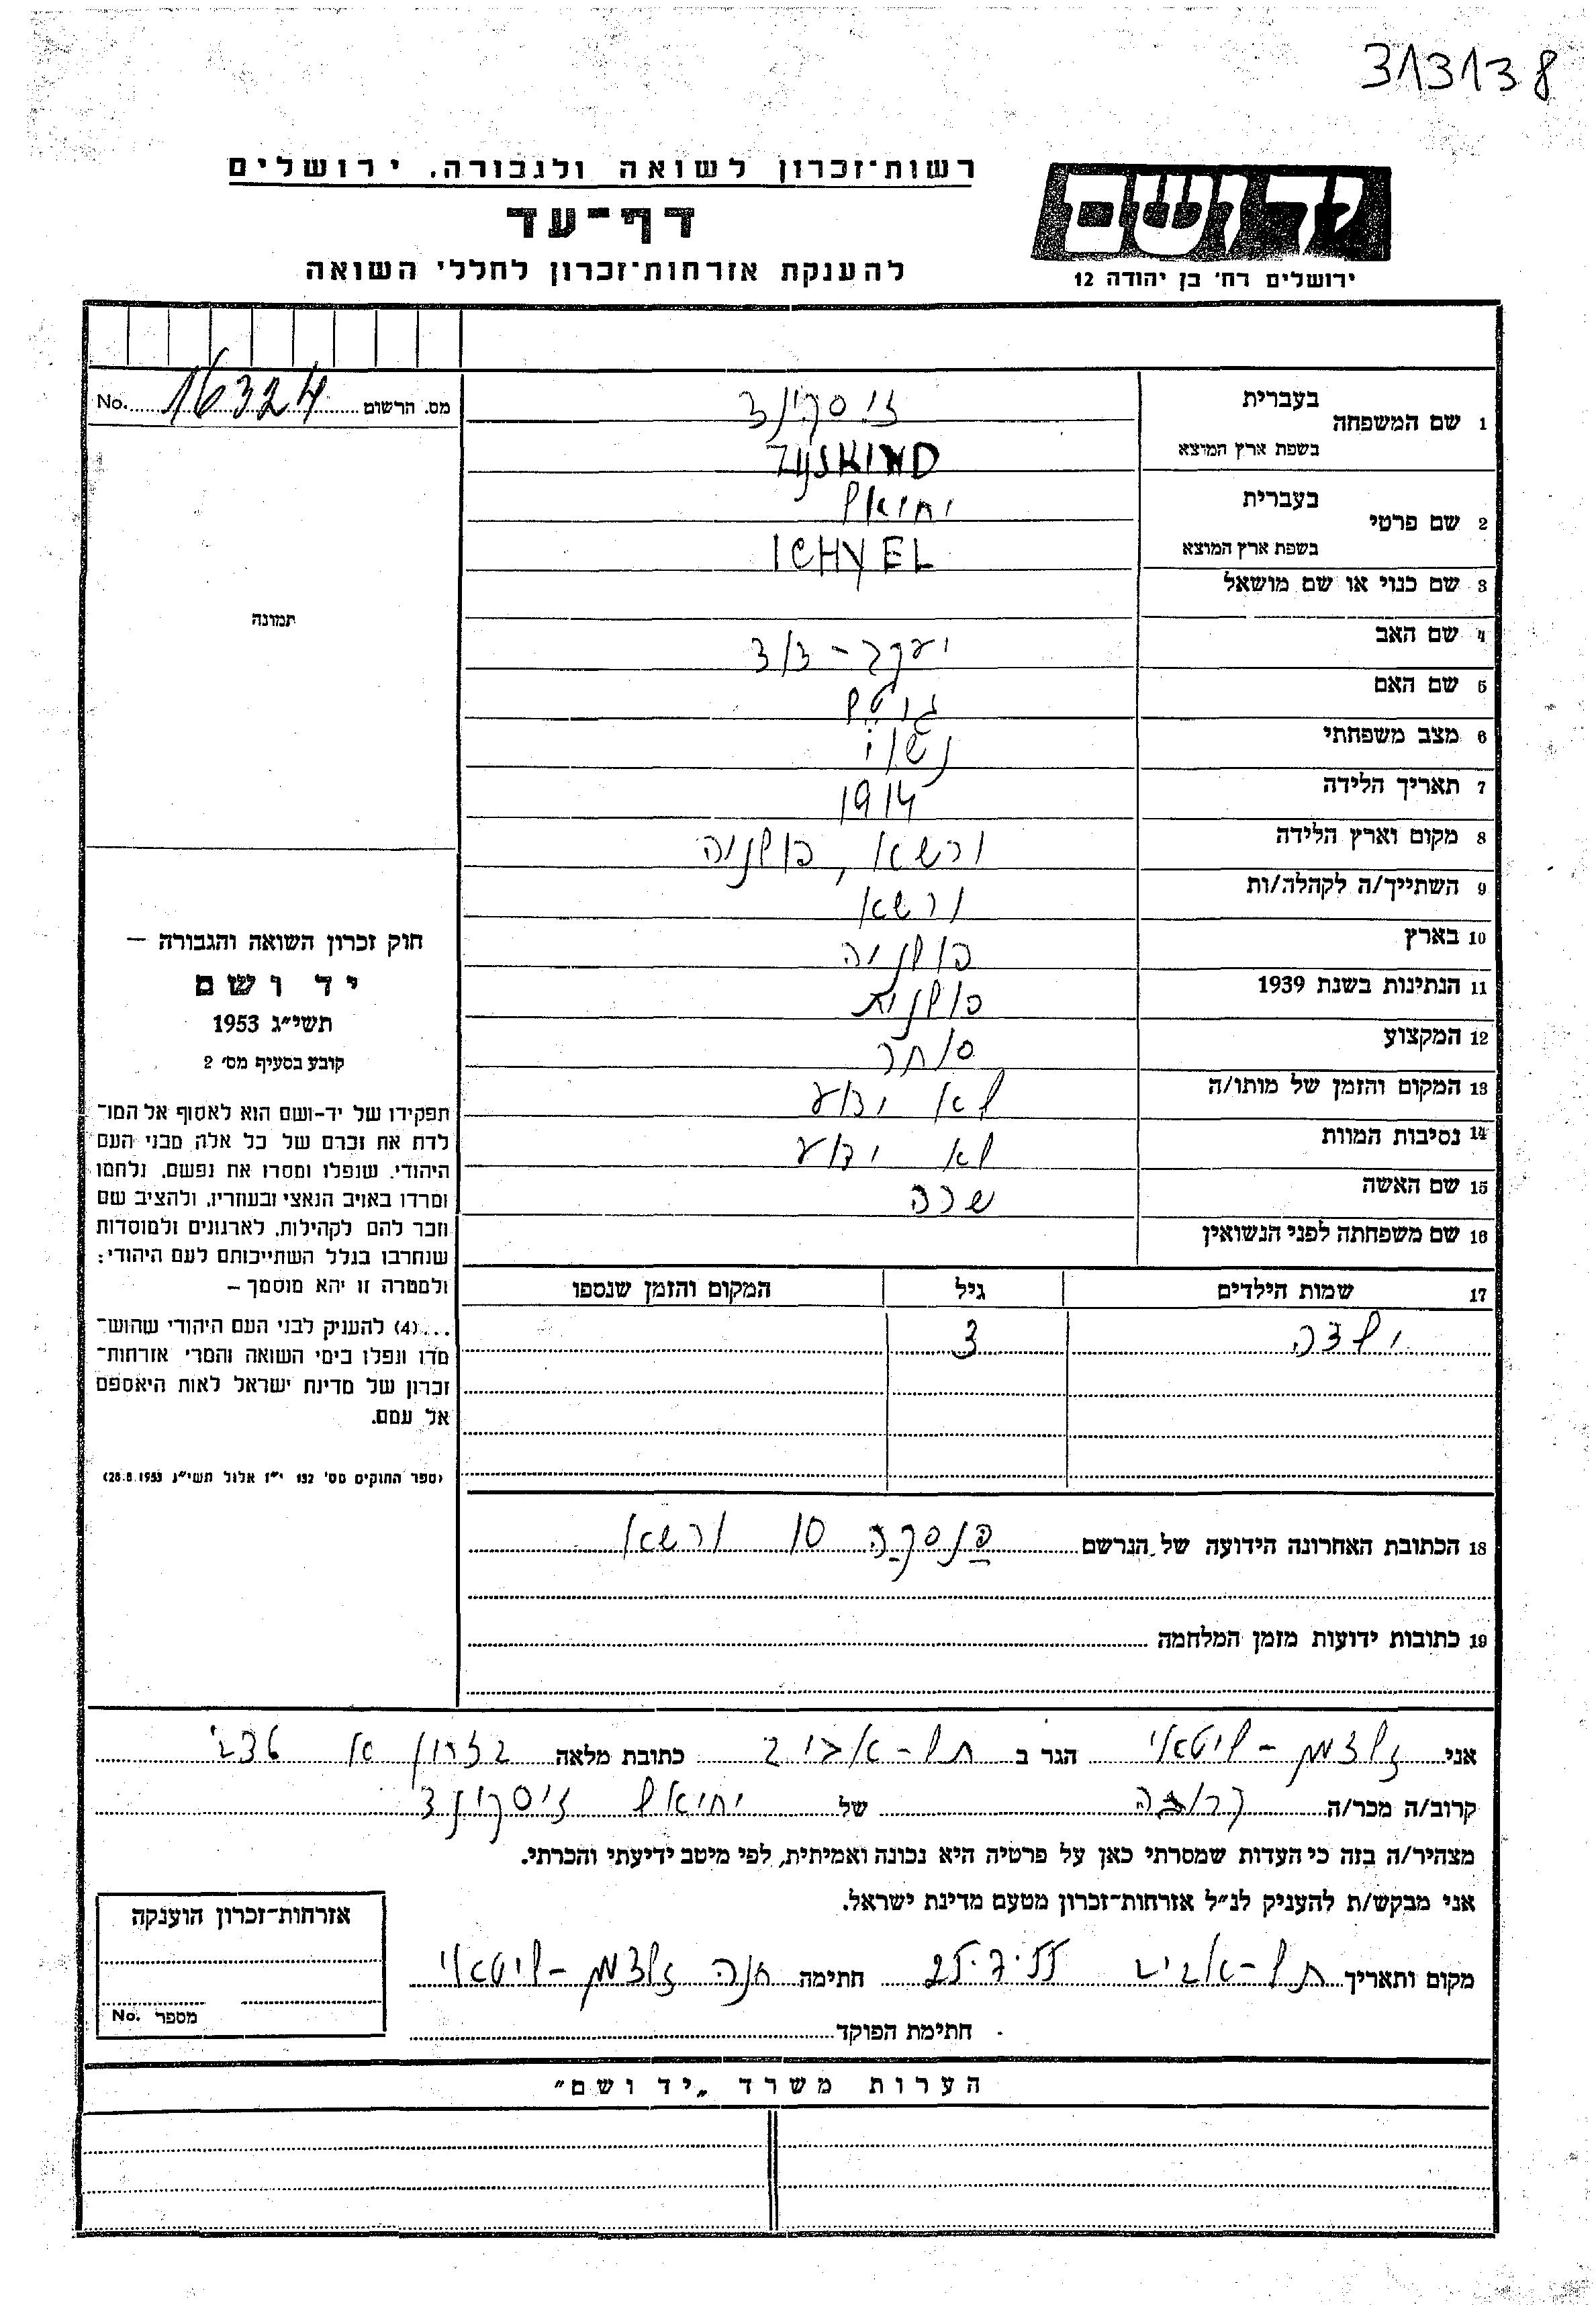 313138
רשות־זכרון לשואה ולגבורה. ירושלים
דף־עד
להענקת אזרחות־זכרון לחללי השואה
ידושם
ירושלים רח' בן יהודה 12
מס. הרשום 16324 No.
1 שם המשפחה
בעברית זיסקינד
בשפת ארץ המוצא ZYSKIND
2 שם פרטי
בעברית יחיאל
בשפת ארץ המוצא ICHYEL
3 שם כנוי או שם מושאל
4 שם האב יעקב - דוד
5 שם האם גיטל
6 מצב משפחתי נשוי
7 תאריך הלידה 1914
8 מקום וארץ הלידה ורשא, פולניה
9 השתייך/ה לקהלה/ות ורשא
10 בארץ פולניה
11 הנתינות בשנת 1939 פולנית
12 המקצוע סוחר
13 המקום והזמן של מותו/ה לא ידוע
14 נסיבות המוות לא ידוע
15 שם האשה שרה
16 שם משפחתה לפני הנשואין
17 שמות הילדים גיל המקום והזמן שנספו
ילדה 3
18 הכתובת האחרונה הידועה של הנרשם פנסקה 10 ורשא
19 כתובות ידועות מזמן המלחמה
תמונה
חוק זכרון השואה והגבורה –
יד ושם
תשי״ג 1953
קובע בסעיף מס׳ 2
תפקידו של יד-ושם הוא לאסוף אל המו־
לדת את זכרם של כל אלה מבני העם
היהודי, שנפלו ומסרו את נפשם, נלחמו
ומרדו באויב הנאצי ובעוזריו, ולהציב שם
וזכר להם לקהילות, לארגונים ולמוסדות
שנחרבו בגלל השתייכותם לעם היהודי:
ולמטרה זו יהא מוסמך –
...(4) להעניק לבני העם היהודי שהוש־
מדו ונפלו בימי השואה והמרי אזרחות־
זכרון של מדינת ישראל לאות היאספם
אל עמם.
(ספר החוקים מס׳ 132 י״ז אלול תשי״ג 28.8.1953)
אני זלצמן - ליטאי הגר ב תל - אביב כתובת מלאה בצרון א
קרוב/ה מכר/ה קרובה של יחיאל זיסקינד
מצהיר/ה בזה כי העדות שמסרתי כאן על פרטיה היא נכונה ואמיתית, לפי מיטב ידיעתי והכרתי.
אני מבקש/ת להעניק לנ״ל אזרחות־זכרון מטעם מדינת ישראל.
מקום ותאריך תל - אביב 25.7.55 חתימה חנה זלצמן - ליטאי
חתימת הפוקד
אזרחות־זכרון הוענקה
מספר No.
הערות משרד „יד ושם״